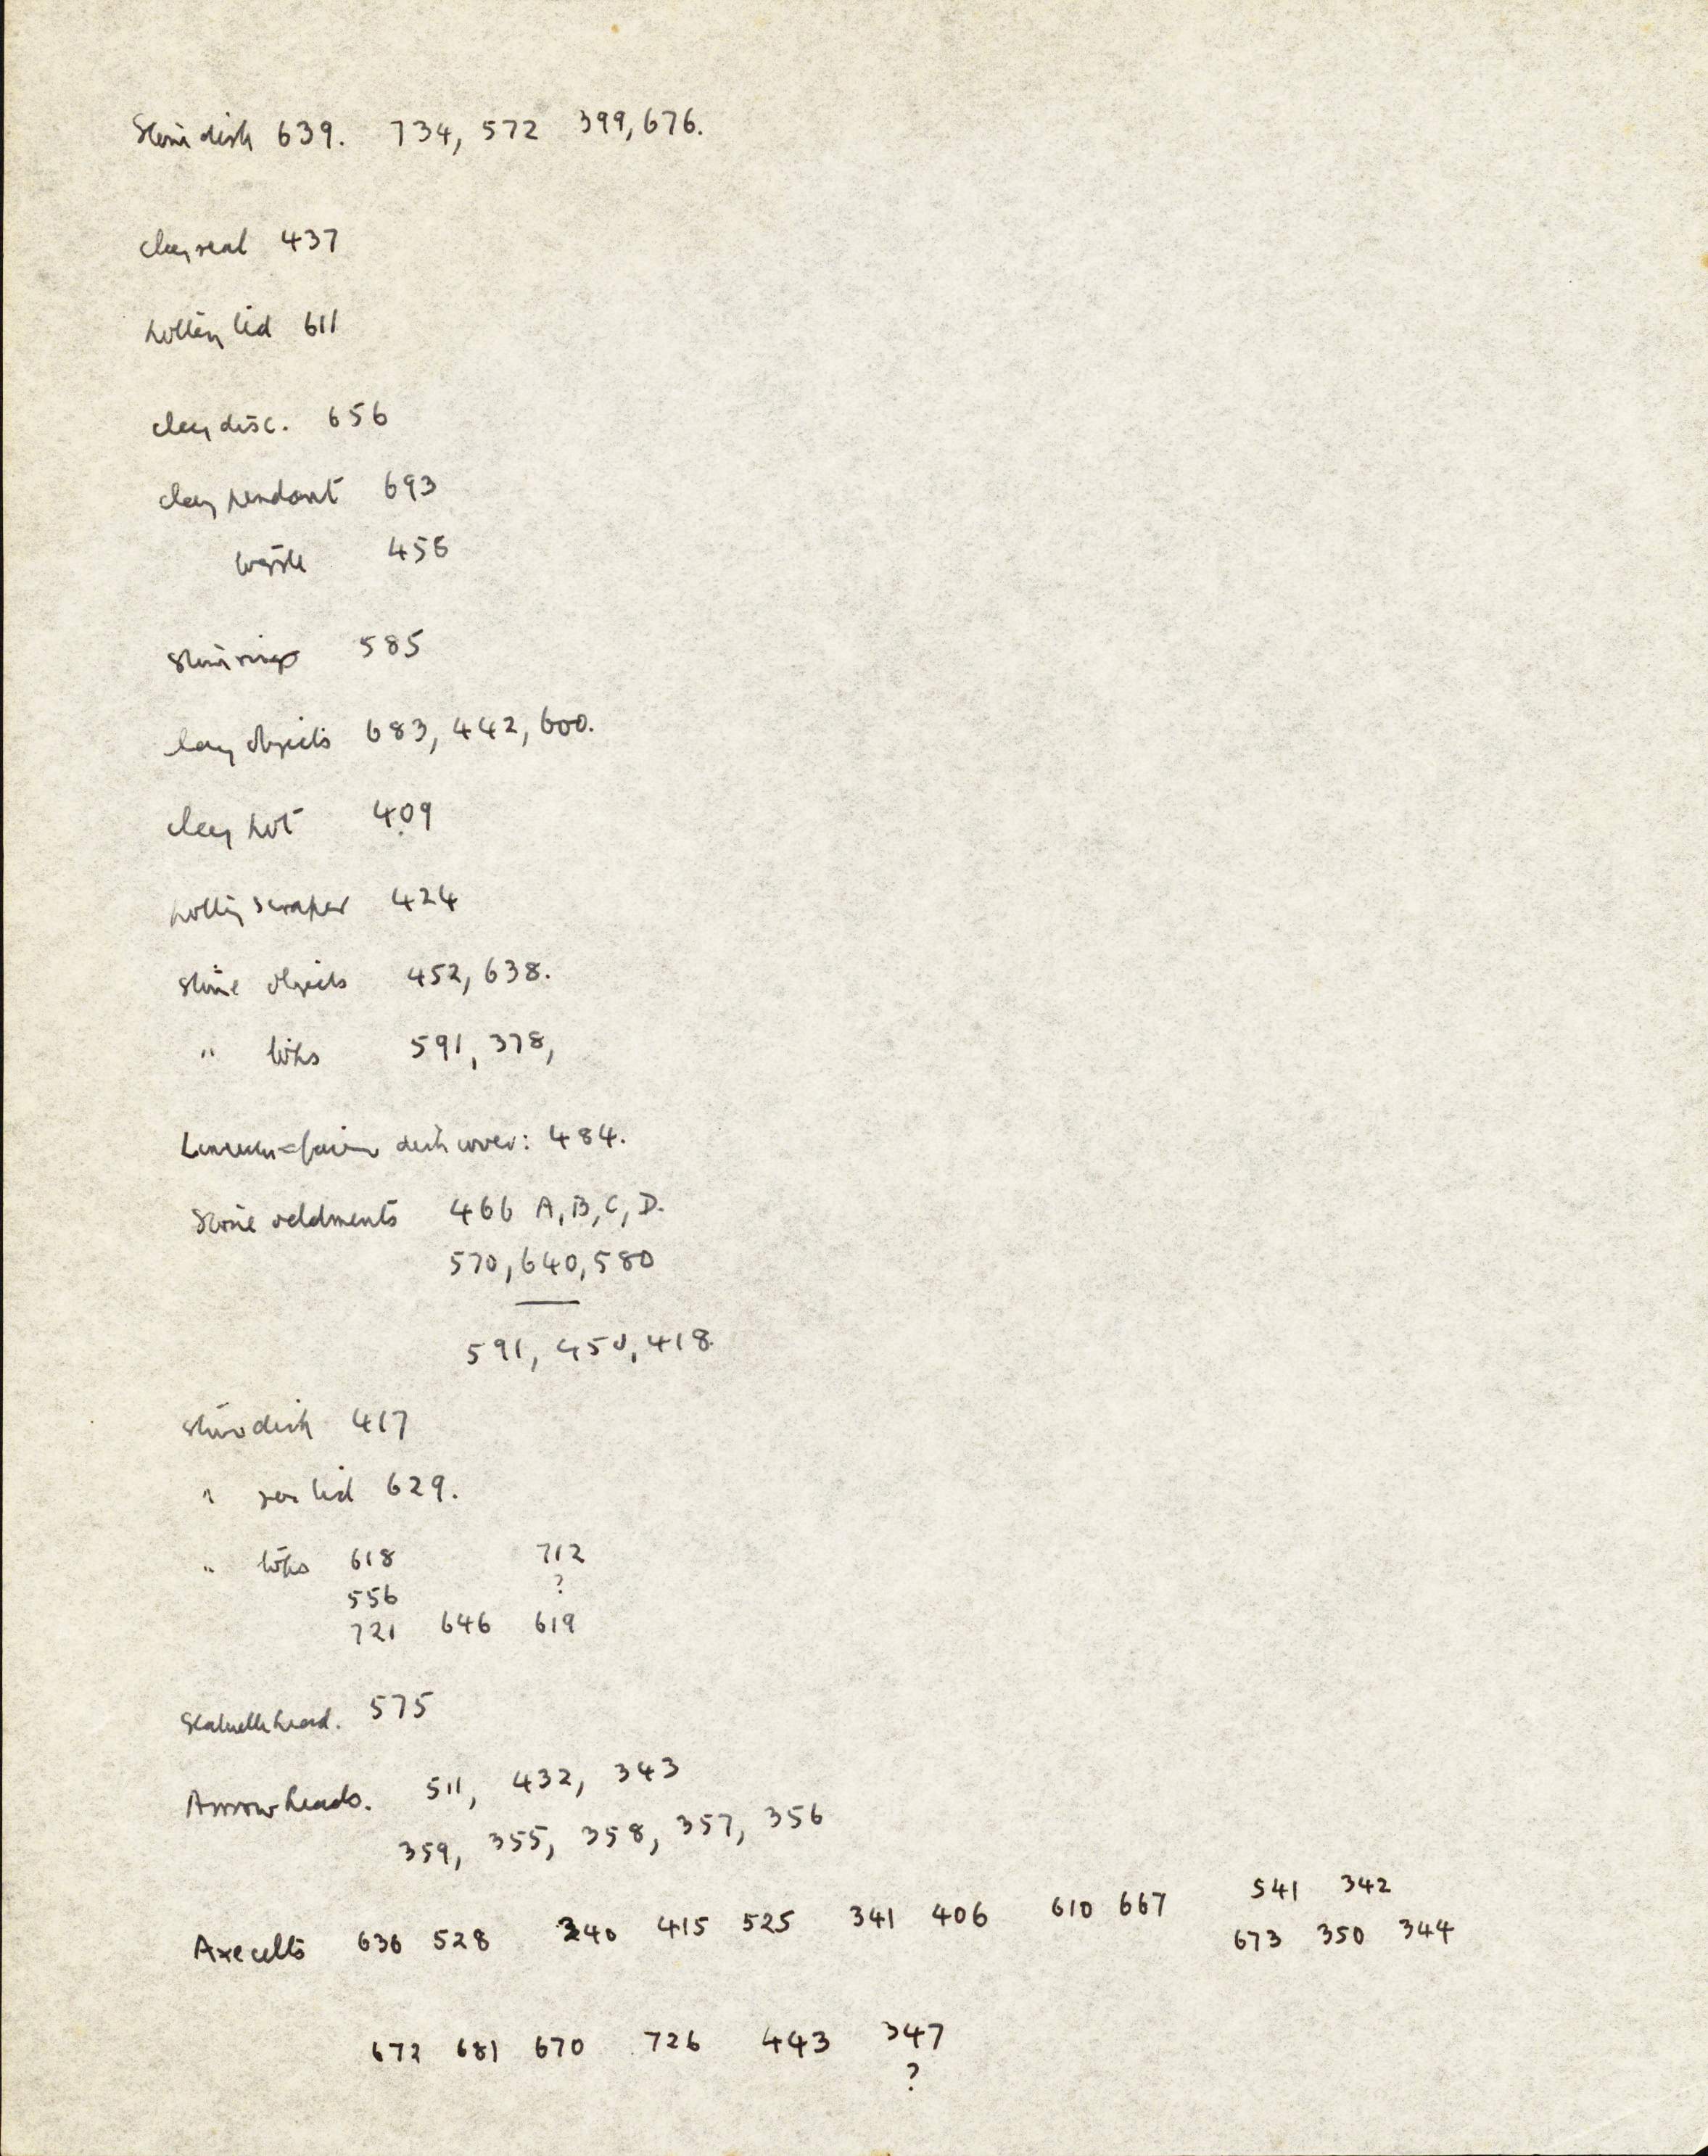 Stone dish 639. 734, 572 399, 676.
clay seal 437
pottery lid 611
clay disc. 656
clay pendant 693
456
Stone rings 585
clay objects 683, 442, 600.
clay pot 409
pottery scraper 424
Stone objects 452, 638.
" tops 591, 378,
dish cover: 484.
Stone oddments 466 A, B, C, D.
570, 640, 580
591, 450, 418.
Stone dish 417
" lid 629.
" tops 618 712
556 ?
721 646 619
Statuette head. 575
Arrowheads. 511, 432, 343
359, 355, 358, 357, 356
541 342
Axe celts 636 528 340 415 525 341 406 610 667
673 350 344
672 681 670 726 443 347
?